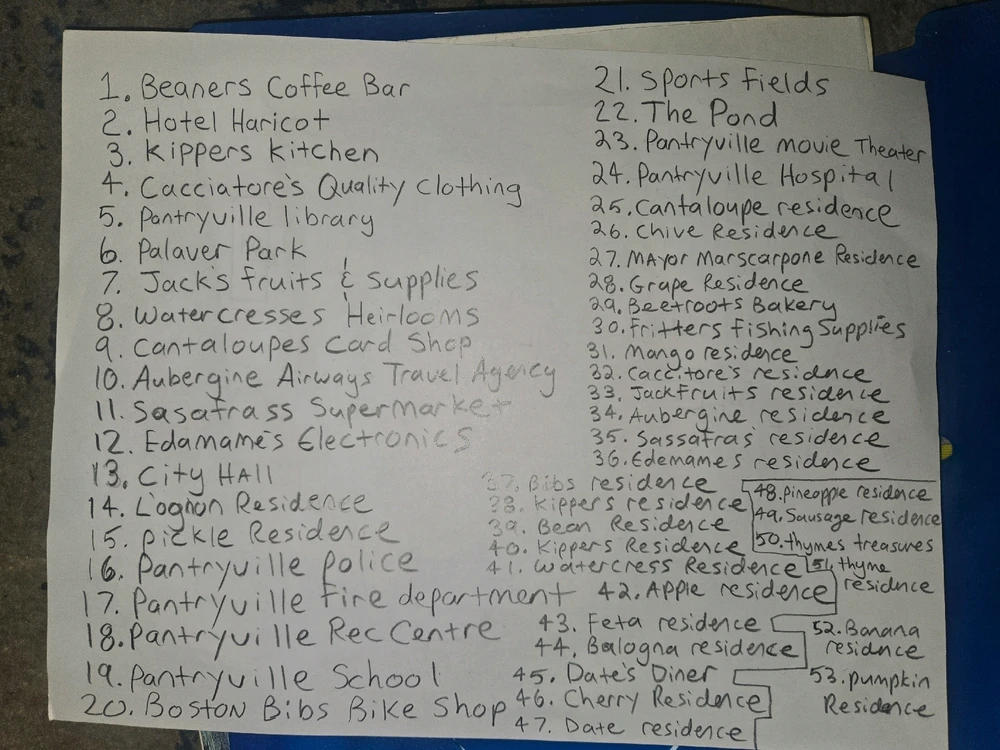 1. Beaners Coffee Bar
2. Hotel Haricot
3. Kippers Kitchen
4. Cacciatore's Quality clothing
5. Pantryville library
6. Palaver Park
7. Jack's fruits & supplies
8. Watercresses Heirlooms
9. Cantaloupes Card Shop
10. Aubergine Airways Travel Agency
11. Sasafrass Supermarket
12. Edamame's Electronics
13. City HAll
14. Lognon Residence
15. Pickle Residence
16. Pantryville police
17. Pantryville fire department
18. Pantryville Rec Centre
19. Pantryville School
20. Boston Bibs Bike Shop
21. Sports Fields
22. The Pond
23. Pantryville movie Theater
24. Pantryville Hospital
25. Cantaloupe residence
26. Chive Residence
27. MAyor Marscarpone Residence
28. Grape Residence
29. Beetroots Bakery
30. Fritters fishing Supplies
31. Mango residence
32. Caccitore's residnce
33. Jackfruits residence
34. Aubergine residence
35. Sassafras residence
36. Edemames residence
37. Bibs residence
38. Kippers residence
39. Bean Residence
40. Kippers Residence
41. Watercress Residence
42. Apple residence
43. Feta residence
44. Balogna residence
45. Date's Diner
46. Cherry Residence
47. Date residence
48. pineapple residence
49. Sausage residence
50. thymes treasures
51. thyme
residnce
52. Banana
residnce
53. pumpkin
Residence